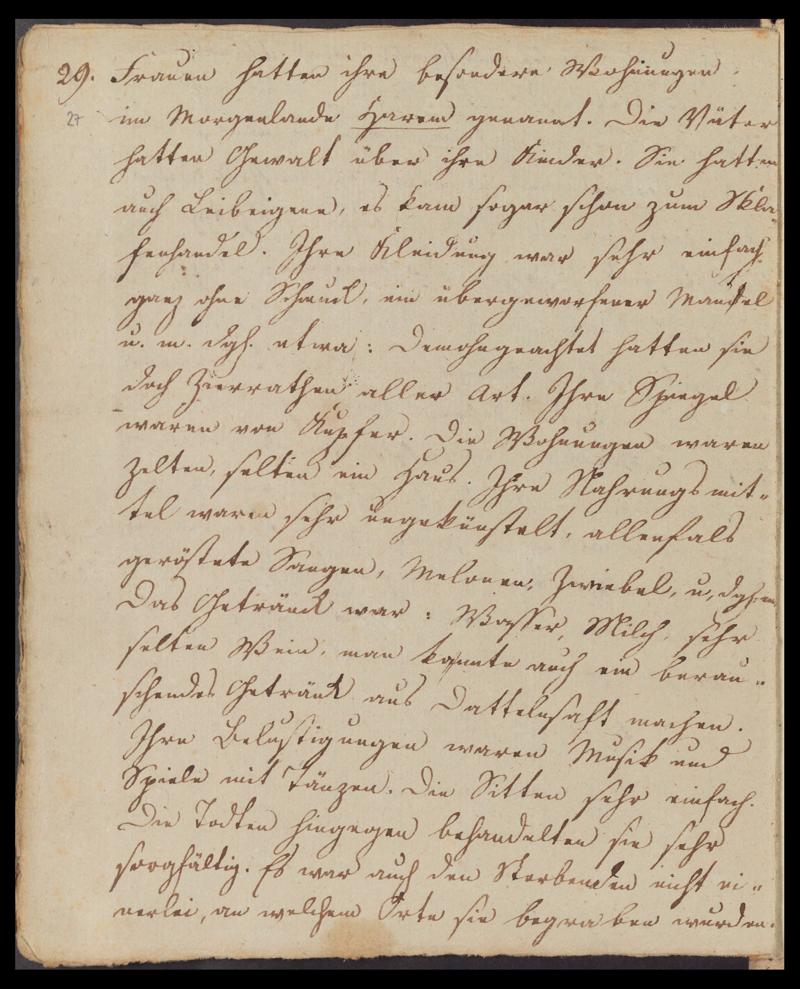 29. Frauen hatten ihre besondere Wohnungen
27
im Morgenlande Harem genannt. Die Väter
hatten Gewalt über ihre Kinder. Sie hatten
auch Leibeigene, es kam sogar schon zum Skla-
fenhandel. Ihre Kleidung war sehr einfach
ganz ohne Schmuck, ein übergeworfener Mantel
u. m. dgl. etwa: Demohngeachtet hatten sie
doch Zierrathen aller Art. Ihre Spiegel
waren von Kupfer. Die Wohnungen waren
Zelten, selten ein Haus. Ihre Nahrungsmit-
tel waren sehr ungekünstelt, allenfals
geröstete Sangen, Melonen, Zwiebel, u, dgl.
Das Getränck war: Wasser, Milch, sehr
selten Wein, man kannte auch ein berau-
schendes Getränk aus Dattelnsaft machen.
Ihre Belustigungen waren Musik und
Spiele mit Tänzen. Die Sitten sehr einfach.
Die Todten hingegen behandelten sie sehr
sorgfältig. Es war auch den Sterbenden nicht ei-
nerlei, an welchem Orte sie begraben wurden.